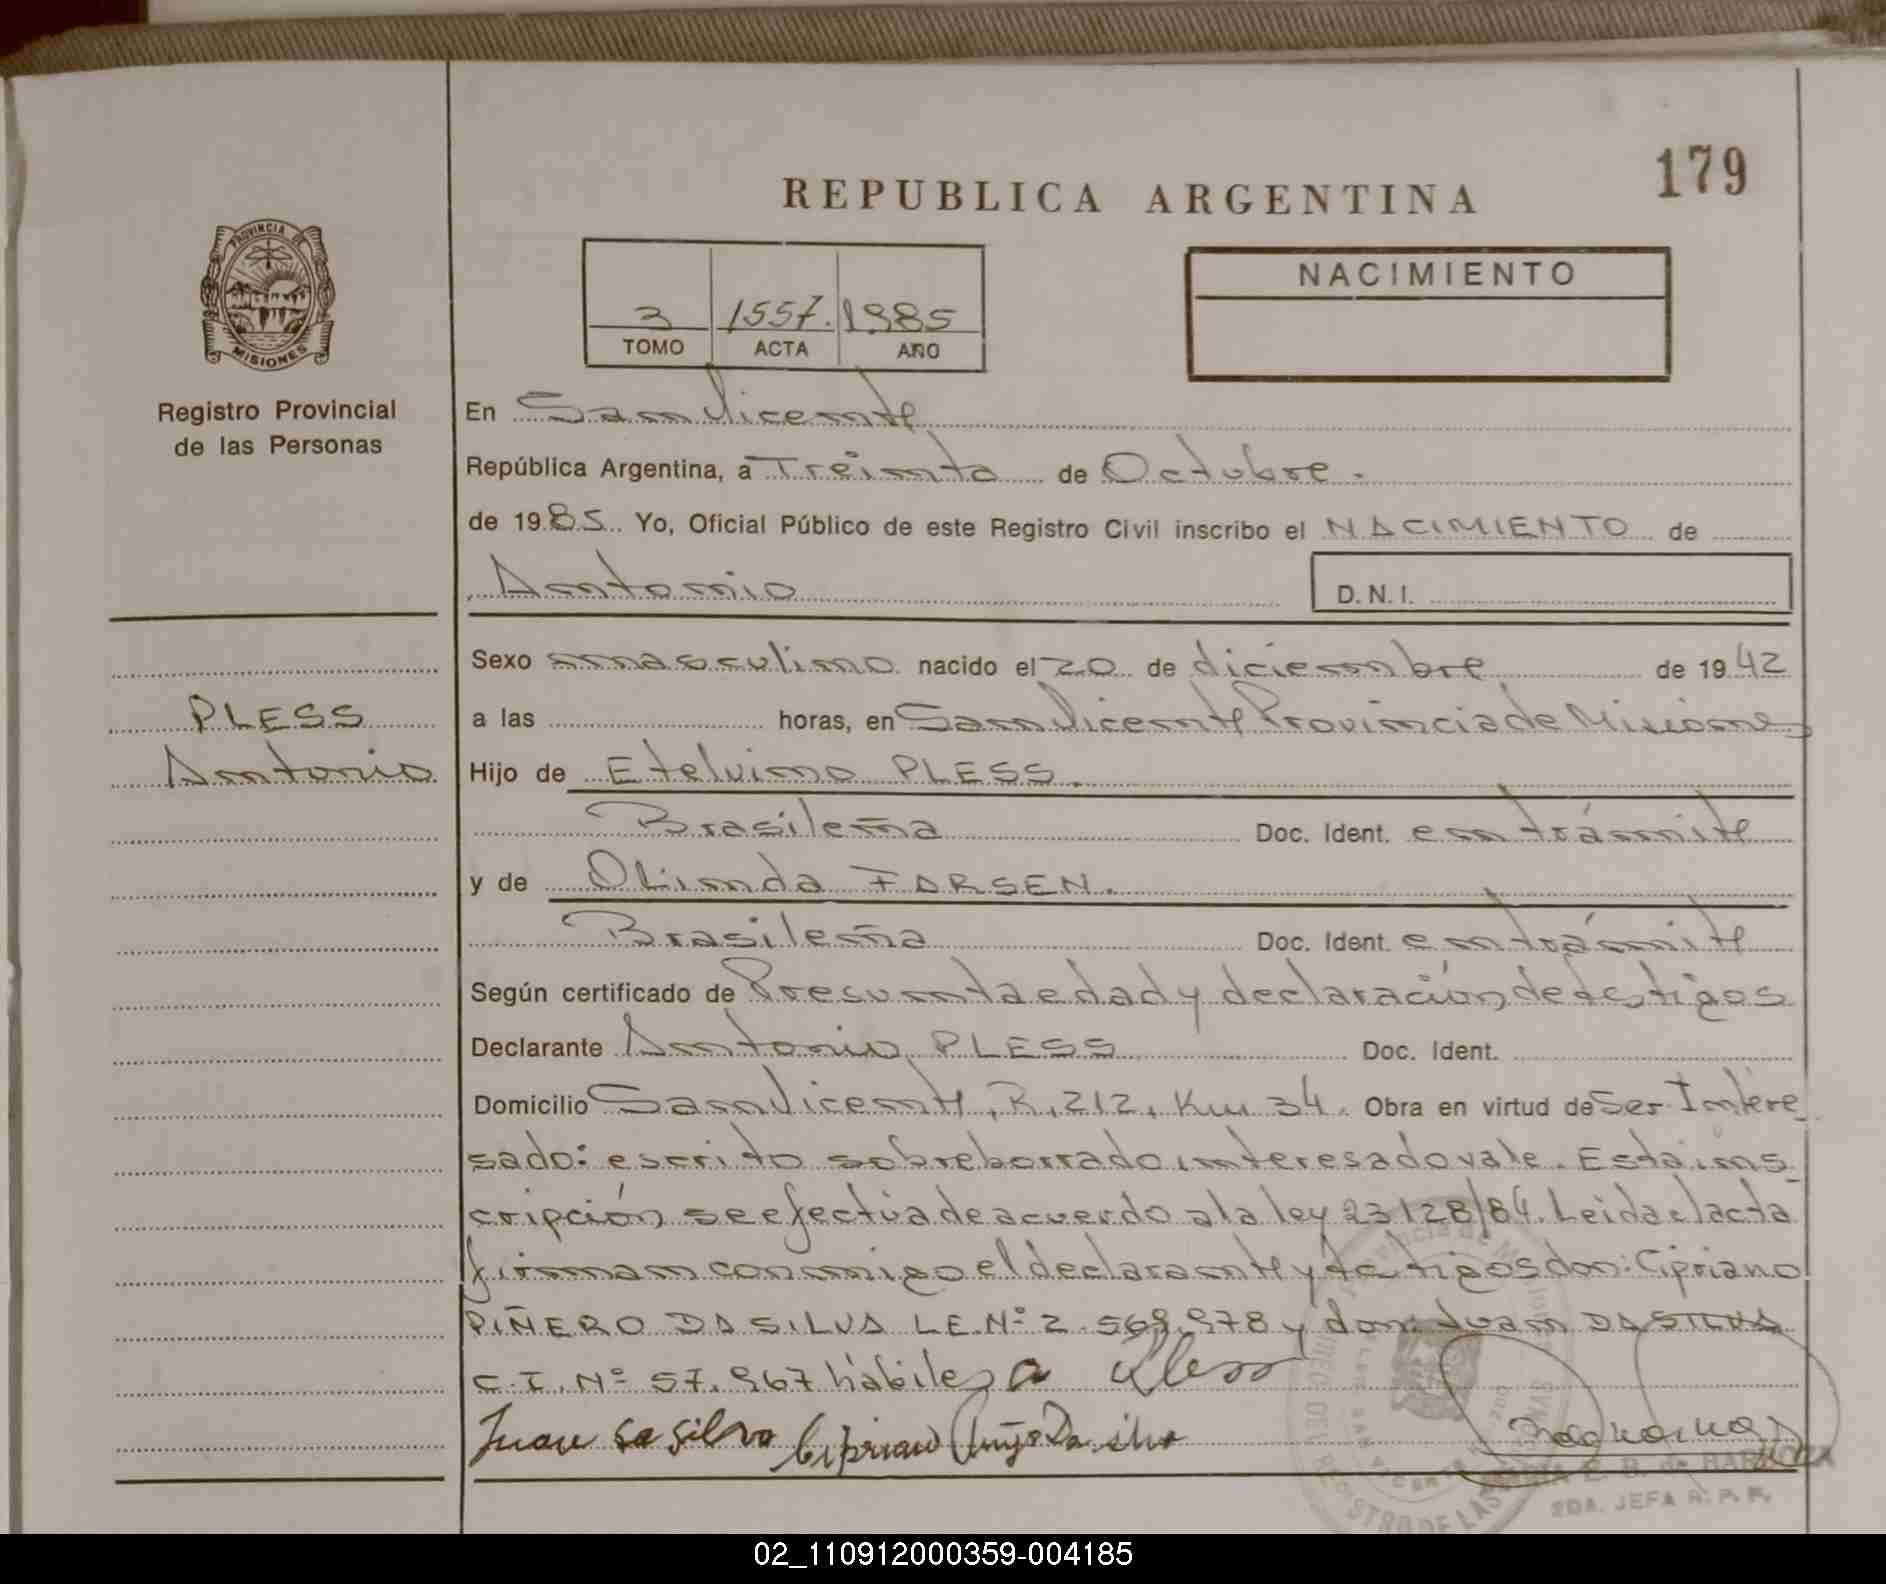 179
REPUBLICA ARGENTINA
PROVINCIA DE
MISIONES
Registro Provincial
de las Personas
3 1557. 1985
TOMO ACTA AÑO
NACIMIENTO
En San Vicente
República Argentina, a Treinta de Octubre.
de 1985 Yo, Oficial Público de este Registro Civil inscribo el NACIMIENTO de
Antonio D.N.I.
Sexo masculino nacido el 20 de diciembre de 1942
PLESS
Antonio
a las horas, en San Vicente Provincia de Misiones
Hijo de Etelvino PLESS.
Brasileña Doc. Ident. en trámite
y de Olinda FARSEN.
Brasileña Doc. Ident. en trámite
Según certificado de Presunta edad y declaración de testigos
Declarante Antonio PLESS Doc. Ident.
Domicilio San Vicente, R. 212, Km 34. Obra en virtud de Ser Intere
sado: escrito sobreborrado interesado vale. Esta ins
cripción se efectúa de acuerdo a la ley 23128/84. Leida el acta
firman conmigo el declarante y testigos don: Cipriano
PIÑERO DA SILVA L.E. Nº 2.569.978 y don: Juan DA SILVA
C.I. Nº 57.967 hábiles a Pless
Juan da silva Cipriano Da silva
2DA. JEFA R. P. P.
02_110912000359-004185